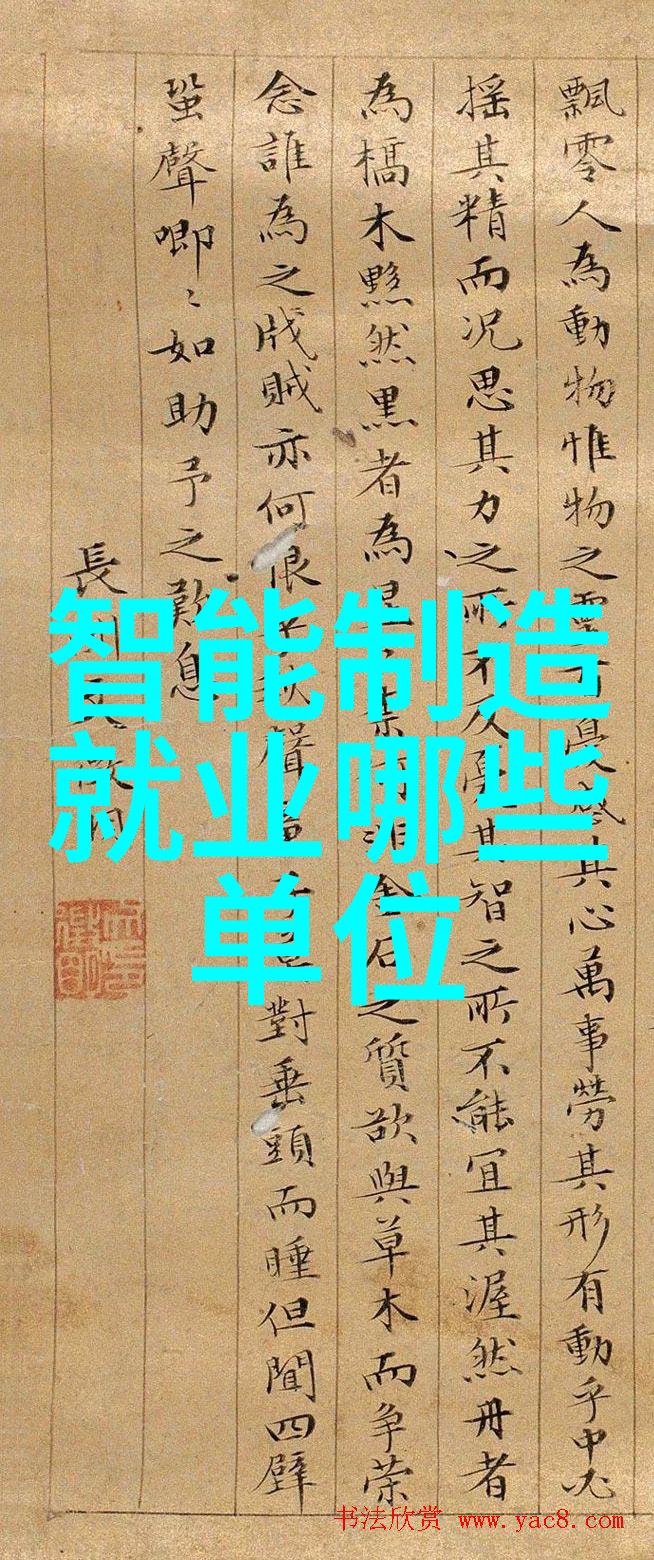 飄零人為動物惟物之靈百憂感其心萬事勞其形有動乎中必
搖其精而況思其力之所不及憂其智之所不能宜其渥然丹者
為槁木黟然黑者為星非金石之質欲與草木而争荣
念誰為之戕賊亦何恨乎秋聲童對垂頭而睡但聞四壁
蛩聲唧〻如助予之歎息
長洲文徵明
智能制造
就业哪些
单位
书法欣赏 www.yac8.com